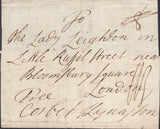 To
the Lady Leighton in
Little Rusel Street near
Bloomsbury Square
London
Free
Corbet Kynaston